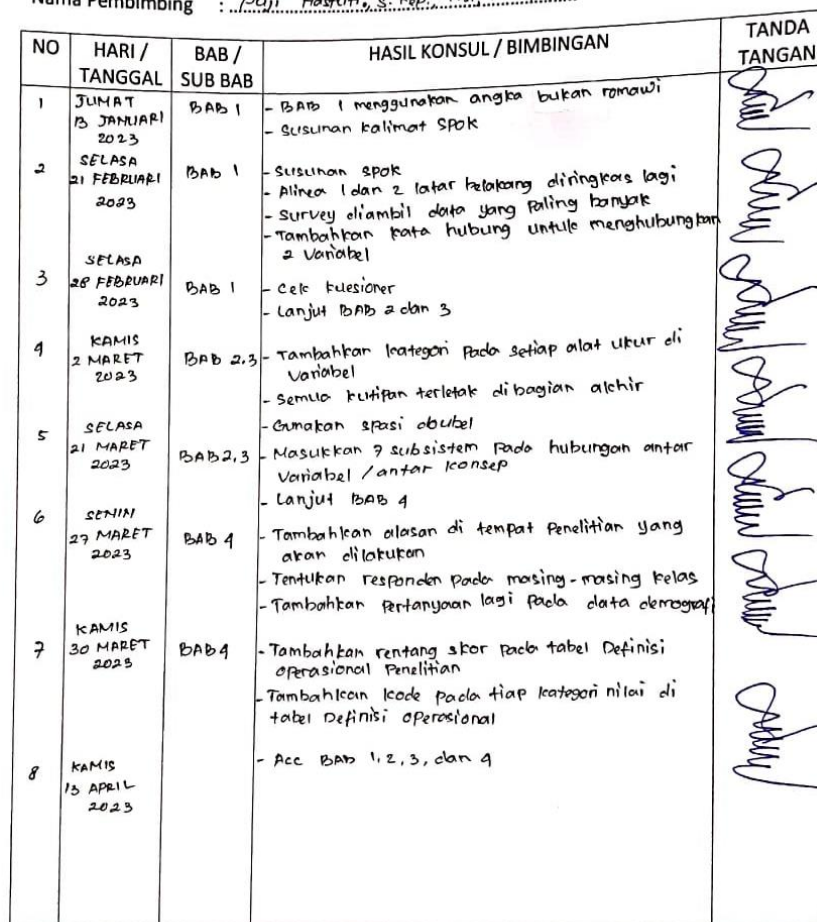 Nama Pembimbing : Puji Hastuti, S. Kep.,
NO
HARI / TANGGAL
BAB / SUB BAB
HASIL KONSUL / BIMBINGAN
TANDA TANGAN
1
JUMAT
13 JANUARI
2023
BAB 1
- BAB 1 menggunakan angka bukan romawi
- Susunan kalimat SPOK
2
SELASA
21 FEBRUARI
2023
BAB 1
- Susunan SPOK
- Alinea 1 dan 2 latar belakang diringkas lagi
- Survey diambil data yang paling banyak
- Tambahkan kata hubung untuk menghubungkan
2 variabel
3
SELASA
28 FEBRUARI
2023
BAB 1
- Cek kuesioner
- Lanjut BAB 2 dan 3
4
KAMIS
2 MARET
2023
BAB 2.3
- Tambahkan kategori pada setiap alat ukur di
variabel
- Semua kutipan terletak dibagian akhir
5
SELASA
21 MARET
2023
BAB 2,3
- Gunakan spasi doubel
- Masukkan 7 subsistem pada hubungan antar
variabel / antar konsep
- Lanjut BAB 4
6
SENIN
27 MARET
2023
BAB 4
- Tambahkan alasan di tempat penelitian yang
akan dilakukan
- Tentukan responden pada masing-masing kelas
- Tambahkan pertanyaan lagi pada data demografi
7
KAMIS
30 MARET
2023
BAB 4
- Tambahkan rentang skor pada tabel Definisi
operasional Penelitian
- Tambahkan kode pada tiap kategori nilai di
tabel Definisi operasional
8
KAMIS
13 APRIL
2023
- Acc BAB 1, 2, 3, dan 4